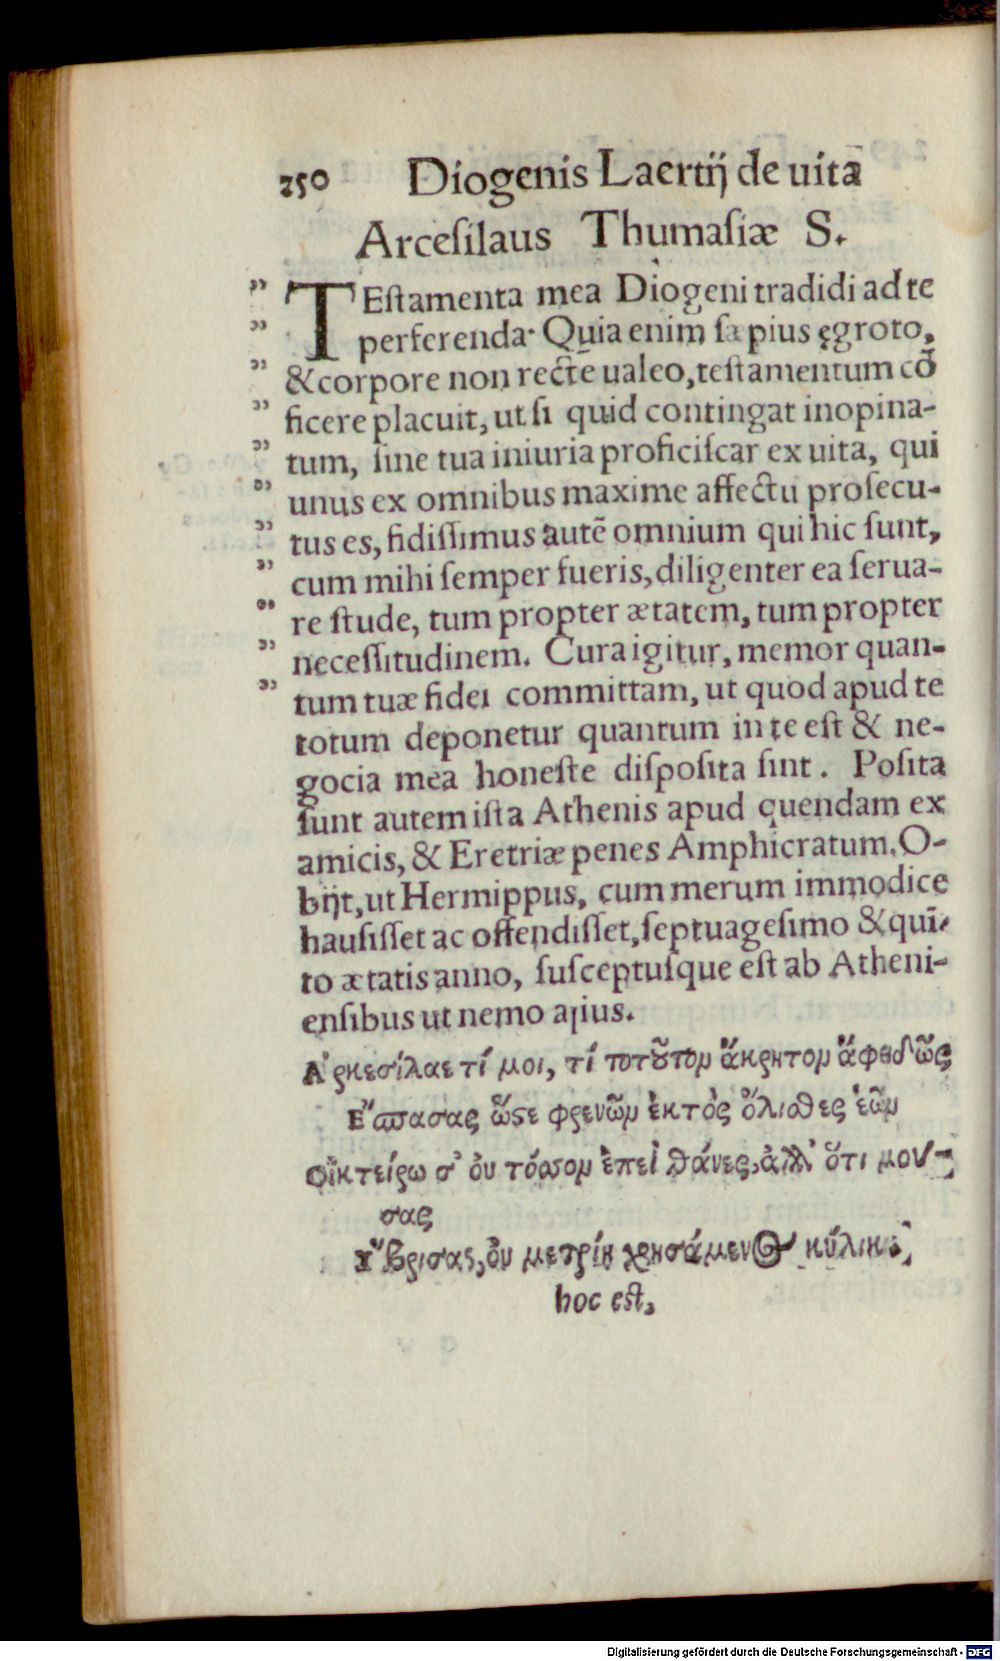 250 Diogenis Laertij de uita
Arcesilaus Thumasiæ S.
" TEstamenta mea Diogeni tradidi ad te
" perferenda. Quia enim sæpius ęgroto,
" & corpore non recte ualeo, testamentum cō
" ficere placuit, ut si quid contingat inopina-
" tum, sine tua iniuria proficiscar ex uita, qui
" unus ex omnibus maxime affectu prosecu-
" tus es, fidissimus autē omnium qui hic sunt,
" cum mihi semper fueris, diligenter ea serua-
" re stude, tum propter ætatem, tum propter
" necessitudinem. Cura igitur, memor quan-
" tum tuæ fidei committam, ut quod apud te
totum deponetur quantum in te est & ne-
gocia mea honeste disposita sint. Posita
sunt autem ista Athenis apud quendam ex
amicis, & Eretriæ penes Amphicratum. O-
bijt, ut Hermippus, cum merum immodice
hausisset ac offendisset, septuagesimo & quī-
to ætatis anno, susceptusque est ab Atheni-
ensibus ut nemo alius.
Ἀρκεσίλαε τί μοι, τί τοτοῦτον ἄκρητον ἄφειδῶς
Ἔσπασας ὥστε φρενῶν ἐκτὸς ὄλισθες ἑῶν
Οἰκτείρω σ' οὐ τόσσον ἐπεὶ θάνες, ἀλλ' ὅτι μού-
σας
Ὕβρισας, οὐ μετρίῃ χρησάμενος κύλικι.
hoc est,
Digitalisierung gefördert durch die Deutsche Forschungsgemeinschaft - DFG